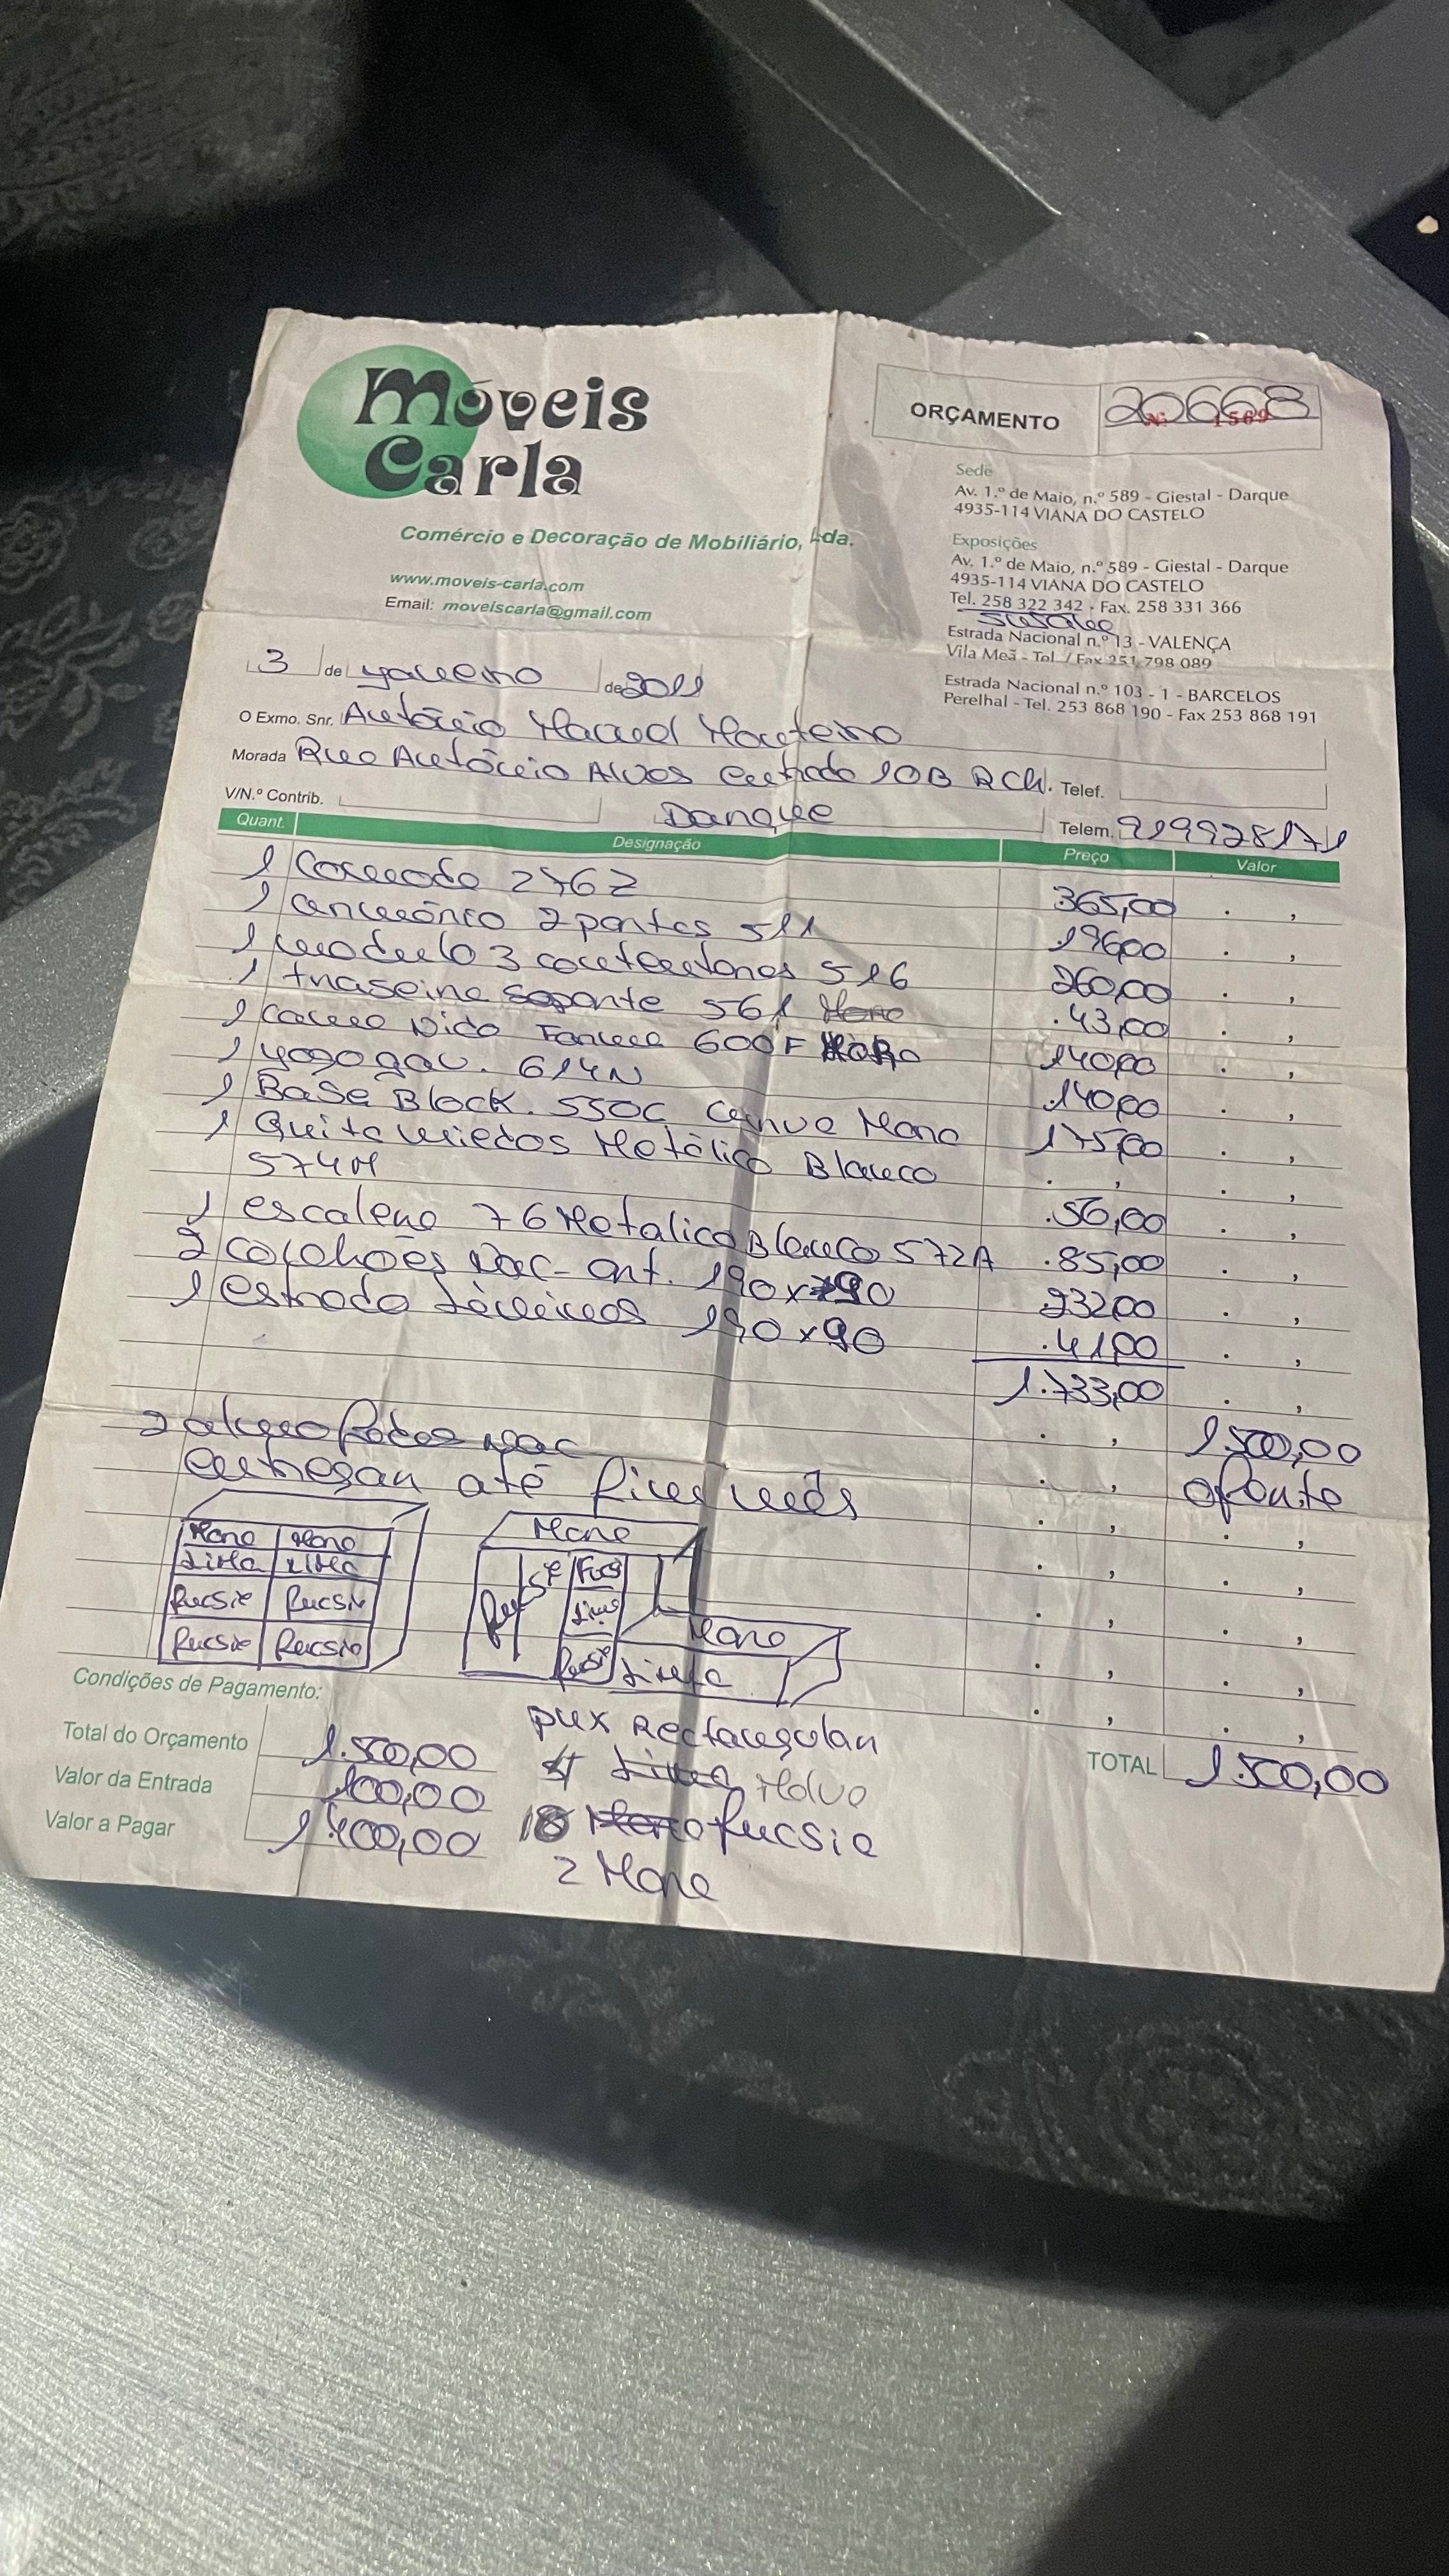 Móveis
Carla
Comércio e Decoração de Mobiliário, Lda.
www.moveis-carla.com
Email: moveiscarla@gmail.com
ORÇAMENTO 20668
Nº 1569
Sede
Av. 1.º de Maio, n.º 589 - Giestal - Darque
4935-114 VIANA DO CASTELO
Exposições
Av. 1.º de Maio, n.º 589 - Giestal - Darque
4935-114 VIANA DO CASTELO
Tel. 258 322 342 - Fax. 258 331 366
Estrada Nacional n.º 13 - VALENÇA
Vila Meã - Tel. / Fax 251 798 089
Estrada Nacional n.º 103 - 1 - BARCELOS
Perelhal - Tel. 253 868 190 - Fax 253 868 191
3 de janeiro de 2011
O Exmo. Snr. António Manuel Monteiro
Morada Rua António Alves entrada 10B RCh. Telef.
V/N.º Contrib. Darque Telem. 919928171
Quant. Designação Preço Valor
1 Comoda 2762 365,00
1 armário 2 portas 511 196,00
1 modulo 3 contentores 516 260,00
1 traseira soporte 561 43,00
1 cama Nido 600F 140,00
1 jogo gav. 614N 140,00
1 Base Block. 550C curva Mora 175,00
1 Quita miedos Metálico Blanco
574M 56,00
1 escalera 76 Metalica Blanco 572A 85,00
2 colchões Nac- ort. 190x90 232,00
1 estrado 190x90 41,00
1.733,00
2 almofadas Nac 1500,00
entregar até fim mês
Mora Mora
Lima Lima
Fucsia Fucsia
Fucsia Fucsia
Mora
Fucsia
Lima
Fucsia
Mora
Lima
Condições de Pagamento:
Total do Orçamento 1.500,00
Valor da Entrada 100,00
Valor a Pagar 1400,00
pux Rectangular
Lima Malva
18 Mora fucsia
2 Mora
TOTAL 1.500,00